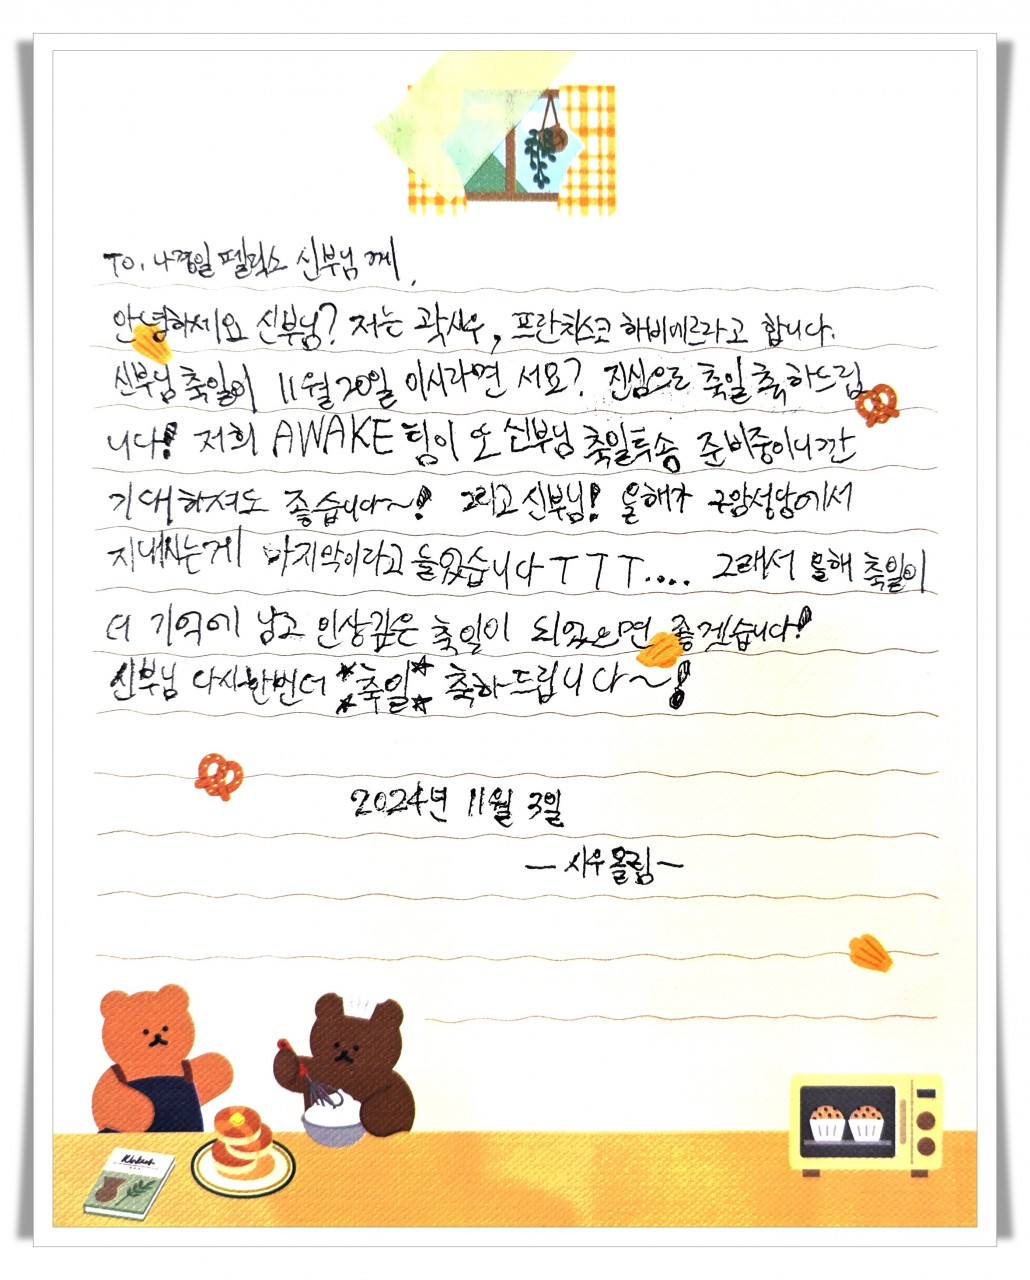 To. 나경일 펠릭스 신부님께.
안녕하세요 신부님? 저는 곽시우, 프란치스코 하비에르라고 합니다.
신부님 축일이 11월 20일 이시라면서요? 진심으로 축일 축하드립
니다! 저희 AWAKE 팀이 또 신부님 축일특송 준비중이니깐
기대하셔도 좋습니다~! 그리고 신부님! 올해가 구암성당에서
지내시는게 마지막이라고 들었습니다 TTT.... 그래서 올해 축일이
더 기억에 남고 인상깊은 축일이 되었으면 좋겟습니다!
신부님 다시한번더 축일 축하드립니다~!
2024년 11월 3일
-시우올림~